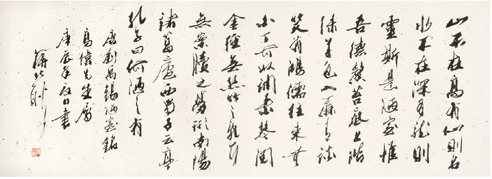 山不在高有仙則名
水不在深有龍則
靈斯是陋室惟
吾德馨苔痕上階
綠草色入簾青談
笑有鴻儒往來無
白丁可以調素琴閱
金經無絲竹之亂耳
無案牘之勞形南陽
諸葛廬西蜀子雲亭
孔子曰何陋之有
唐劉禹錫陋室銘
先生
庚辰年日書